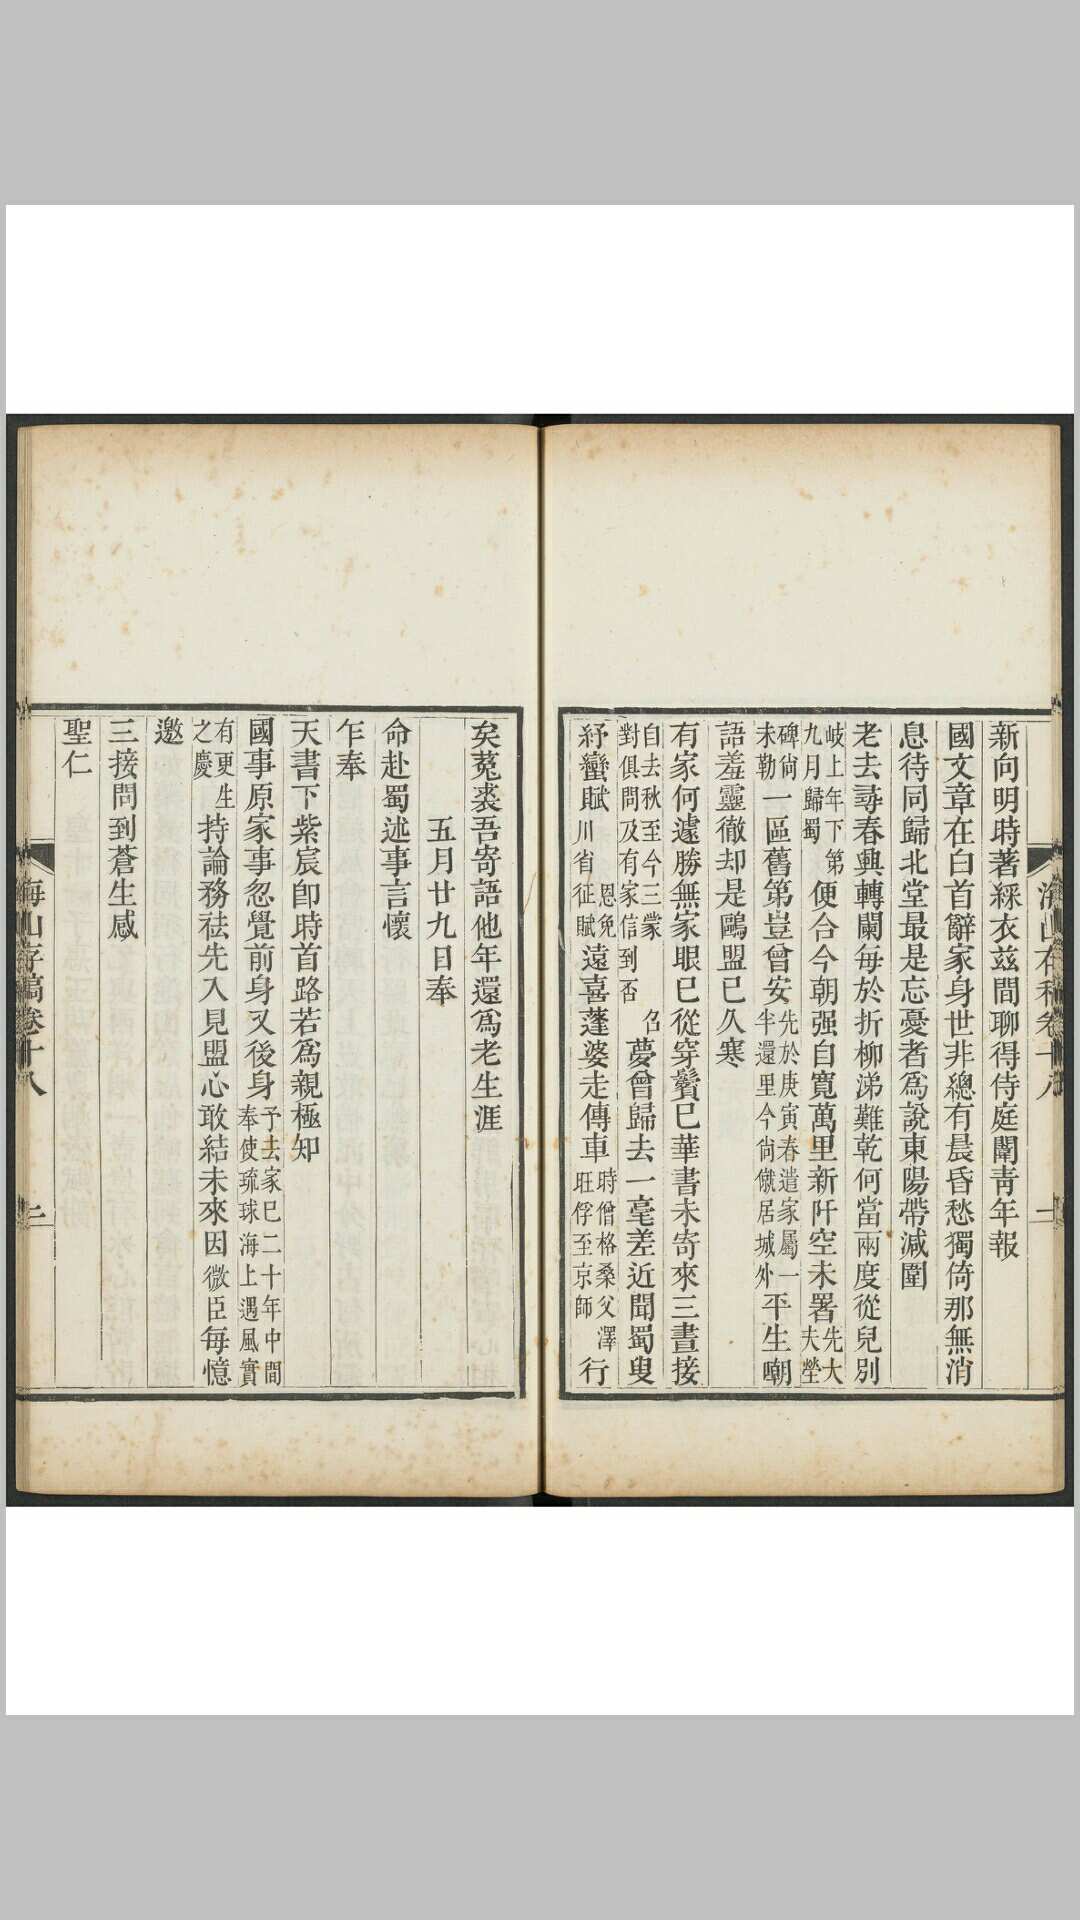 海山存稿卷十八
一
新向明時著綵衣茲間聊得侍庭闈靑年報
國文章在白首辭家身世非總有晨昏愁獨倚那無消
息待同歸北堂最是忘憂者爲說東陽帶減圍
老去尋春興轉闌每於折柳涕難乾何當兩度從兒別
岐上年下第
九月歸蜀
便合今朝强自寬萬里新阡空未署
先大
夫塋
碑尙
未勒
一區舊第豈曾安
先於庚寅春遣家屬一
半還里今尙僦居城外
平生嘲
語羞靈徹却是鷗盟已久寒
有家何遽勝無家眼已從穿鬢已華書未寄來三晝接
自去秋至今三蒙 召
對俱問及有家信到否
夢曾歸去一毫差近聞蜀叟
紓蠻賦
恩免
川省征賦
遠喜蓬婆走傳車
時僧格桑父澤
旺俘至京師
行
矣菟裘吾寄語他年還爲老生涯
五月廿九日奉
命赴蜀述事言懷
乍奉
天書下紫宸卽時首路若爲親極知
國事原家事忽覺前身又後身
予去家已二十年中間
奉使琉球海上遇風實
有更生
之慶
持論務祛先入見盟心敢結未來因微臣每憶
邀
三接問到蒼生感
聖仁
海山存稿卷十八
二